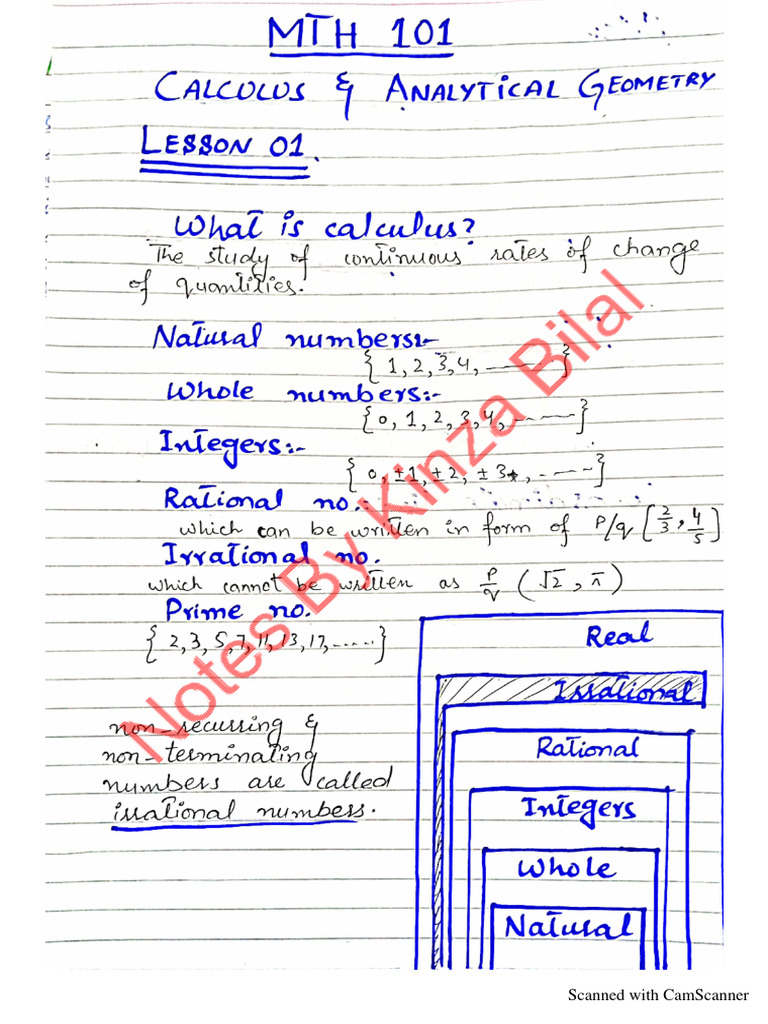 MTH 101
CALCULUS & ANALYTICAL GEOMETRY
LESSON 01.
What is calculus?
The study of continuous rates of change
of quantities.
Natural numbers:-
{1, 2, 3, 4, ----}
Whole numbers:-
{0, 1, 2, 3, 4, ----}
Integers:-
{0, ±1, ±2, ±3, ----}
Rational no.:-
which can be written in form of P/q [2/3, 4/5]
Irrational no.
which cannot be written as P/q (√2, π)
Prime no.
{2, 3, 5, 7, 11, 13, 17, .....}
Real
Irrational
non-recurring &
non-terminating
numbers are called
irrational numbers.
Rational
Integers
Whole
Natural
Notes By Kinza Bilal
Scanned with CamScanner